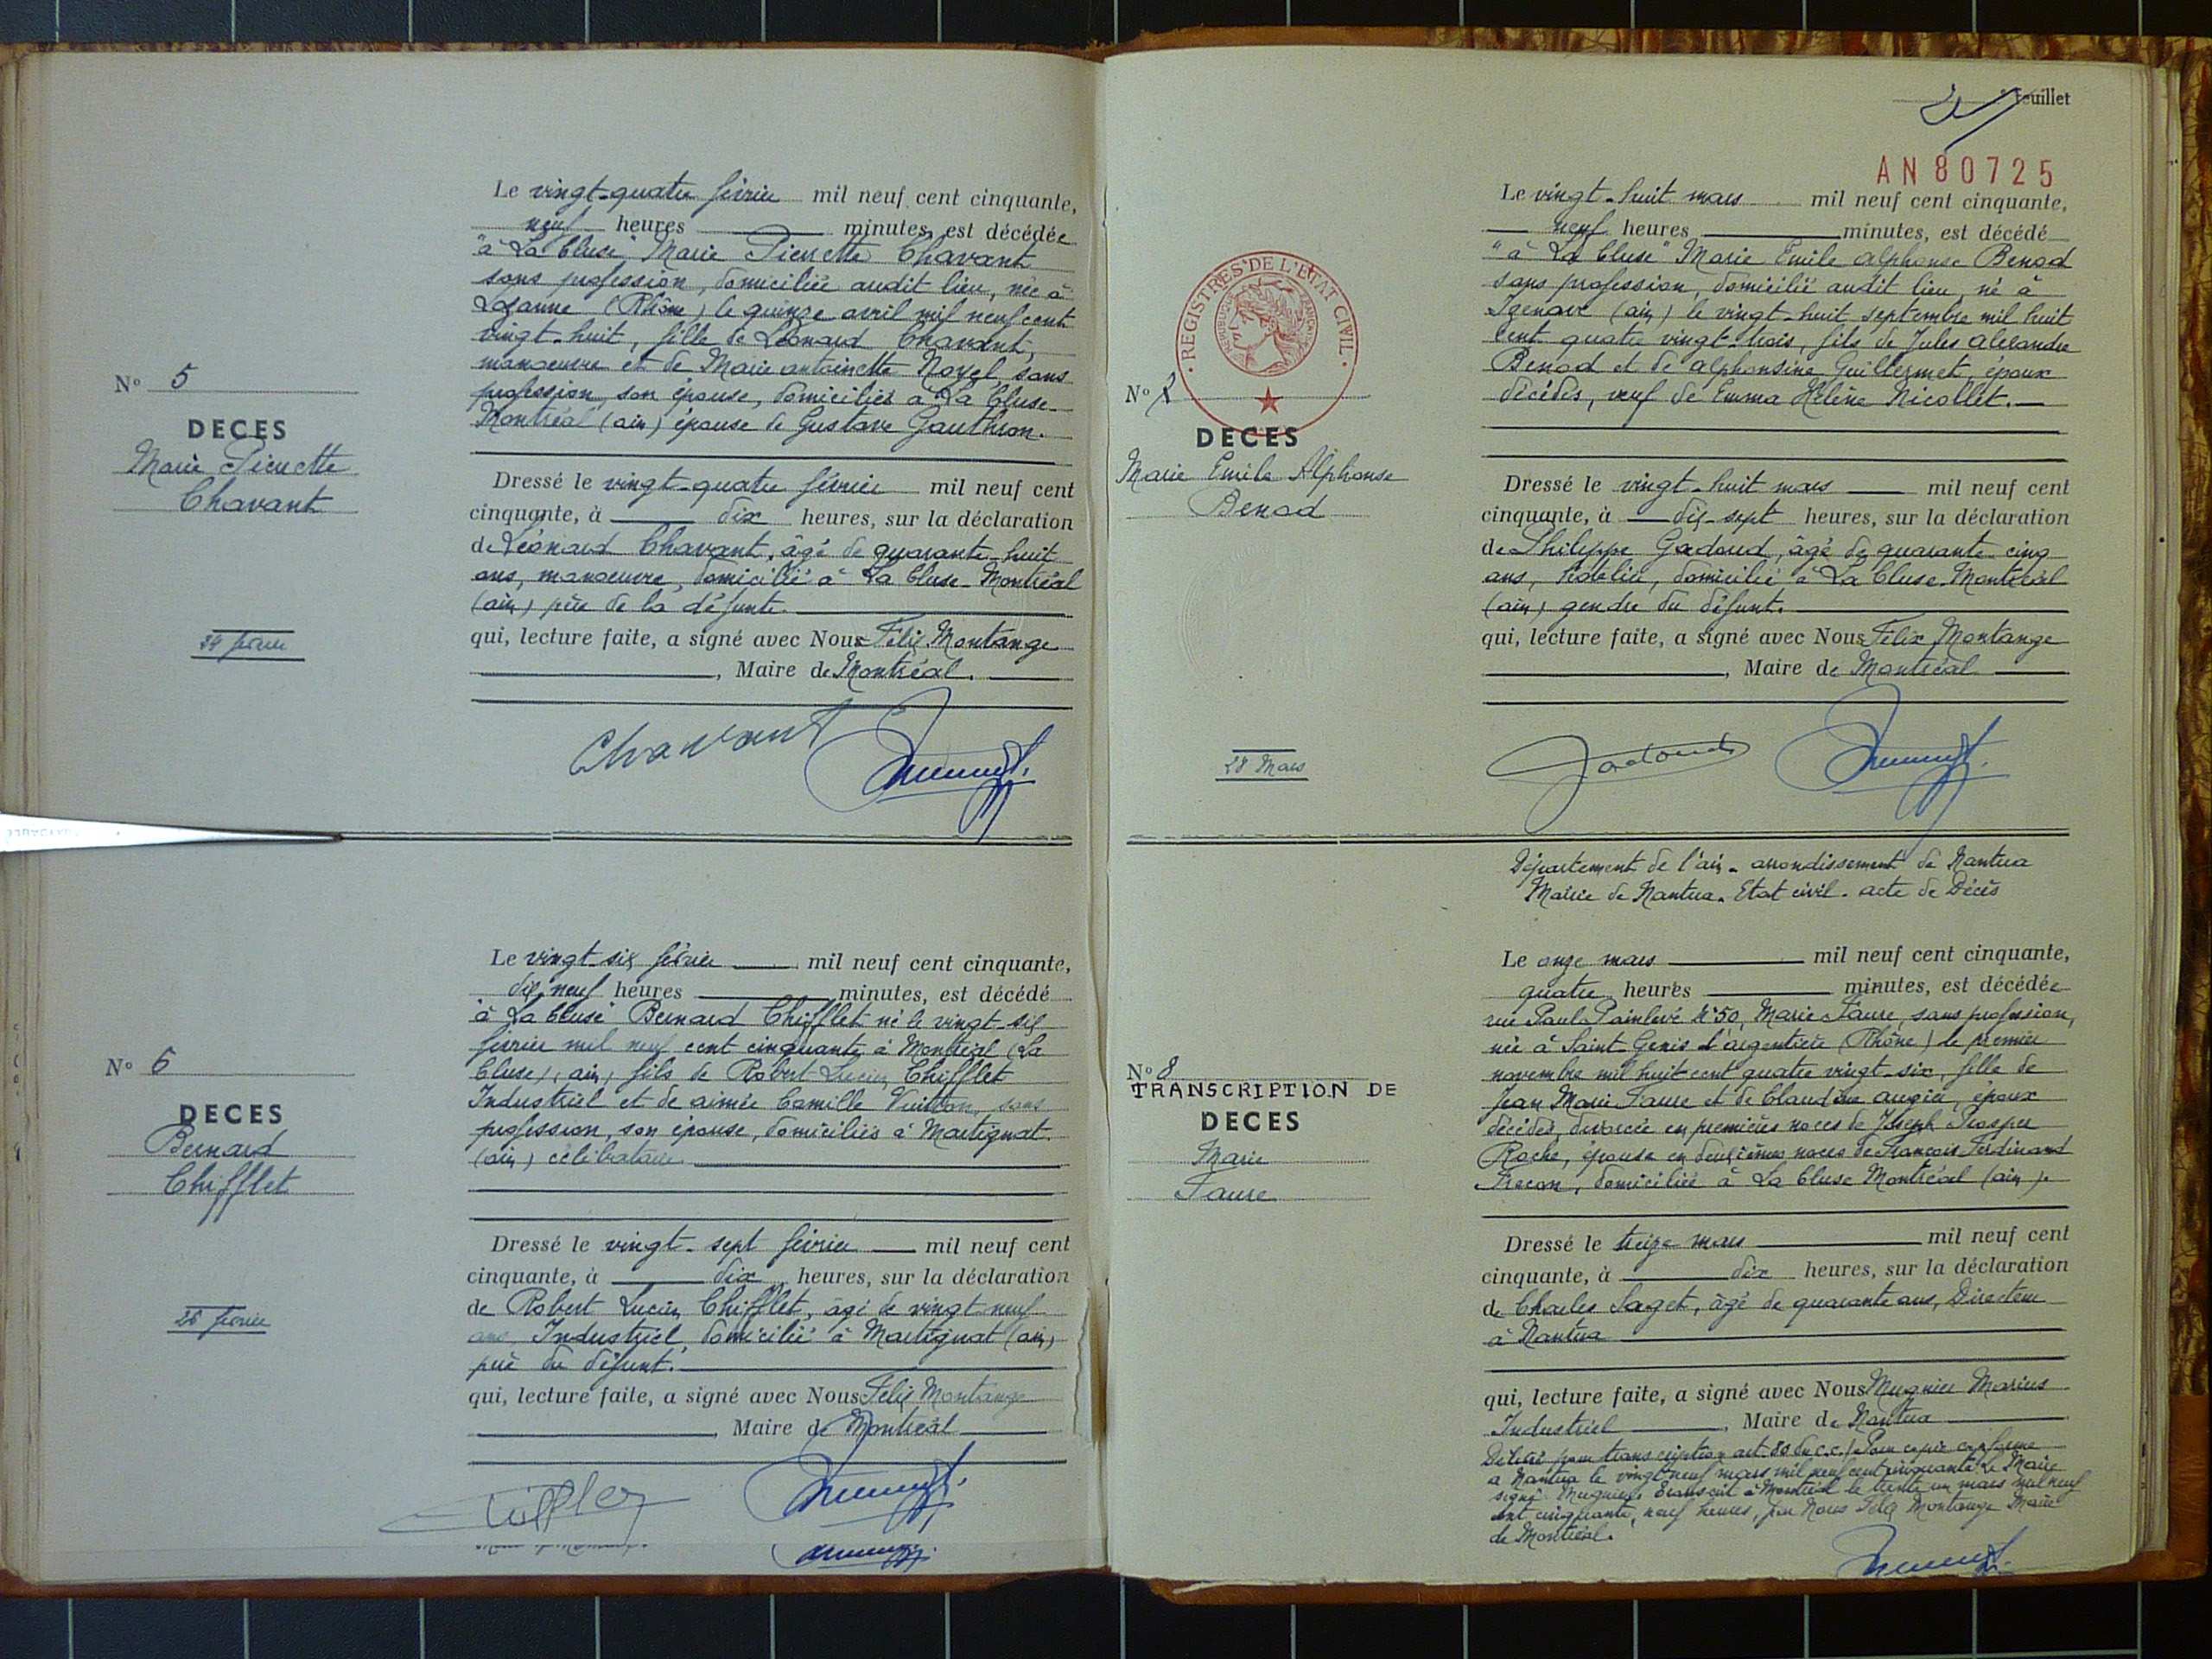 N° 5
DECES
Marie Pierrette
Chavant
24 février
Le vingt-quatre février mil neuf cent cinquante,
neuf heures minutes, est décédée
"à La Cluse" Marie Pierrette Chavant
sans profession, domiciliée audit lieu, née à
Lozanne (Rhône) le quinze avril mil neuf cent
vingt-huit, fille de Léonard Chavant,
manoeuvre et de Marie antoinette Noyel sans
profession, son épouse, domiciliés à La Cluse-
Montréal (ain) épouse de Gustave Gauthron.
Dressé le vingt-quatre février mil neuf cent
cinquante, à dix heures, sur la déclaration
de Léonard Chavant, âgé de quarante-huit
ans, manoeuvre, domicilié à La Cluse-Montréal
(ain) père de la défunte.
qui, lecture faite, a signé avec Nous Félix Montange
, Maire de Montréal.
Chavant
N° 6
DECES
Bernard
Chifflet
26 février
Le vingt-six février mil neuf cent cinquante,
dix-neuf heures minutes, est décédé
"à La Cluse" Bernard Chifflet né le vingt-six
février mil neuf cent cinquante à Montréal (La
Cluse), ain, fils de Robert Lucien Chifflet
Industriel et de aimée Camille Vuitton, sans
profession, son épouse, domiciliés à Martignat
(ain) célibataire
Dressé le vingt-sept février mil neuf cent
cinquante, à dix heures, sur la déclaration
de Robert Lucien Chifflet, âgé de vingt-neuf
ans, Industriel, domicilié à Martignat (ain)
père du défunt.
qui, lecture faite, a signé avec Nous Félix Montange
, Maire de Montréal
feuillet
AN 80725
REGISTRES DE L'ETAT CIVIL
REPUBLIQUE FRANÇAISE
N° 7
DECES
Marie Emile Alphonse
Benod
28 Mars
Le vingt-huit mars mil neuf cent cinquante,
neuf heures minutes, est décédé
"à La Cluse" Marie Emile alphonse Benod
sans profession, domicilié audit lieu, né à
Izenave (ain) le vingt-huit septembre mil huit
cent quatre vingt-trois, fils de Jules alexandre
Benod et de alphonsine Guillermet, époux
décédés, veuf de Emma Hélène Nicollet.
Dressé le vingt-huit mars mil neuf cent
cinquante, à dix-sept heures, sur la déclaration
de Philippe Gadoud, âgé de quarante-cinq
ans, hôtelier, domicilié à La Cluse-Montréal
(ain) gendre du défunt.
qui, lecture faite, a signé avec Nous Félix Montange
, Maire de Montréal
Gadoud
Département de l'ain - arrondissement de Nantua
Mairie de Nantua. Etat civil. acte de Décès
N° 8
TRANSCRIPTION DE
DECES
Marie
Faure
Le onze mars mil neuf cent cinquante,
quatre heures minutes, est décédée
rue Paul Painlevé N°50, Marie Faure, sans profession,
née à Saint-Genis l'argentière (Rhône) le premier
novembre mil huit cent quatre vingt-six, fille de
Jean Marie Faure et de Claudine augier, époux
décédés, divorcée en premières noces de Joseph Prosper
Roche, épouse en deuxièmes noces de François Ferdinand
Frecon, domiciliée à La Cluse Montréal (ain).
Dressé le treize mars mil neuf cent
cinquante, à dix heures, sur la déclaration
de Charles Saget, âgé de quarante ans, Directeur
à Nantua
qui, lecture faite, a signé avec Nous Mugnier Marius
Industriel, Maire de Nantua
Délivré pour transcription art. 80 du c.c.) Pour copie conforme
a Nantua le vingt-neuf mars mil neuf cent cinquante. Le Maire
signé: Mugnier. Transcrit à Montréal le trente un mars mil neuf
cent cinquante, neuf heures, par Nous Félix Montange Maire
de Montréal.